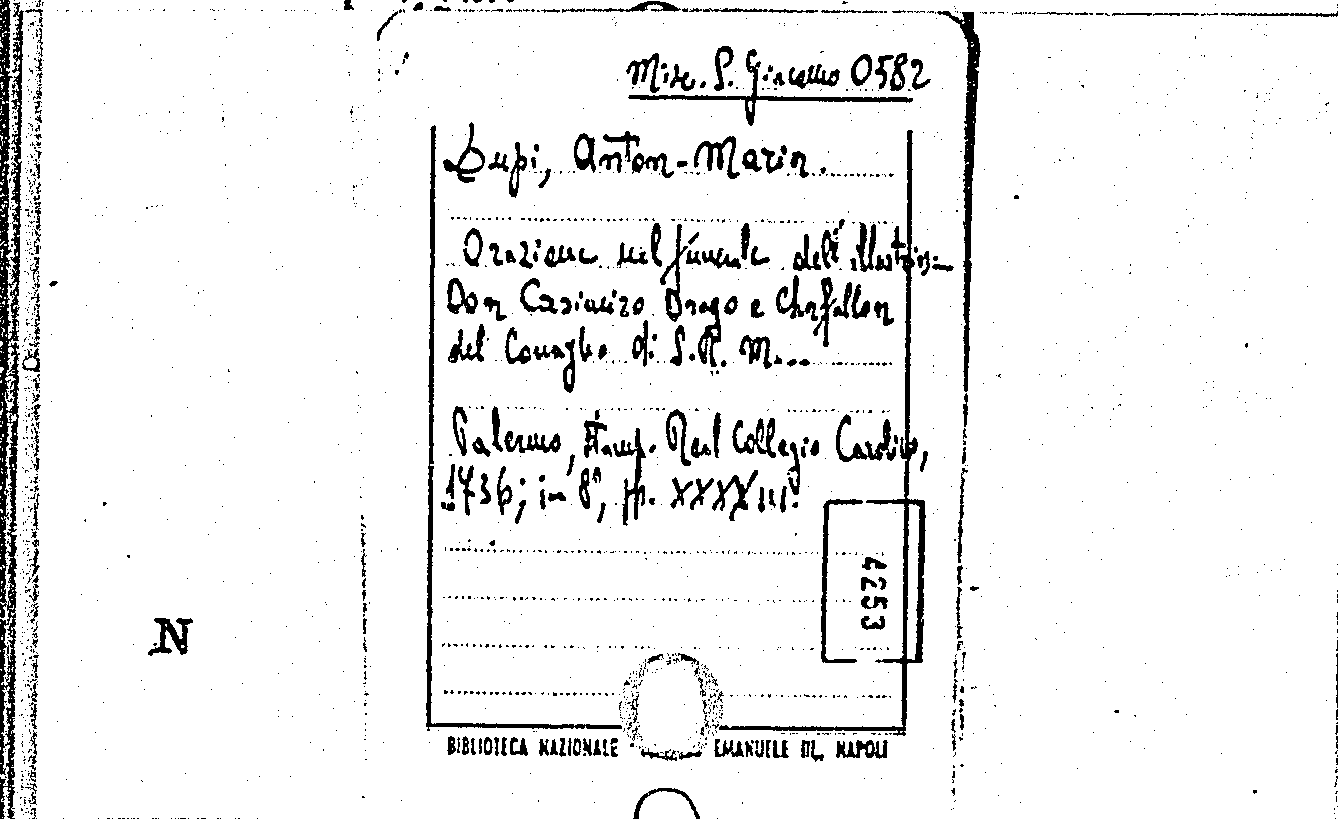 Misc. S. Giacomo 0582
Lupi, Anton-Maria.
Orazione nel funerale dell'illustris-
Don Casimiro Drago e Chafallon
del Consiglio di S.R. M...
Palermo, Stamp. Real Collegio Carolino,
1736; in 8º, pp. XXXXIII.
4253
N
BIBLIOTECA NAZIONALE EMANUELE III. NAPOLI